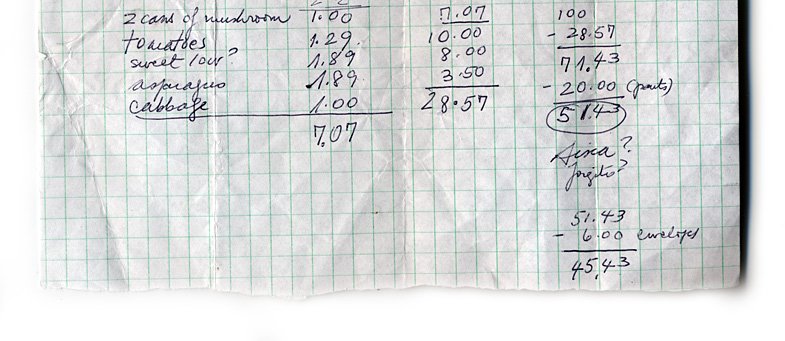 2 cans of mushroom 1.00
tomatoes 1.29
sweet sour? 1.89
asparagus 1.89
cabbage 1.00
7.07
7.07
10.00
8.00
3.50
28.57
100
- 28.57
71.43
- 20.00 (pants)
51.43
?
Jorgito?
51.43
- 6.00 envelops
45.43